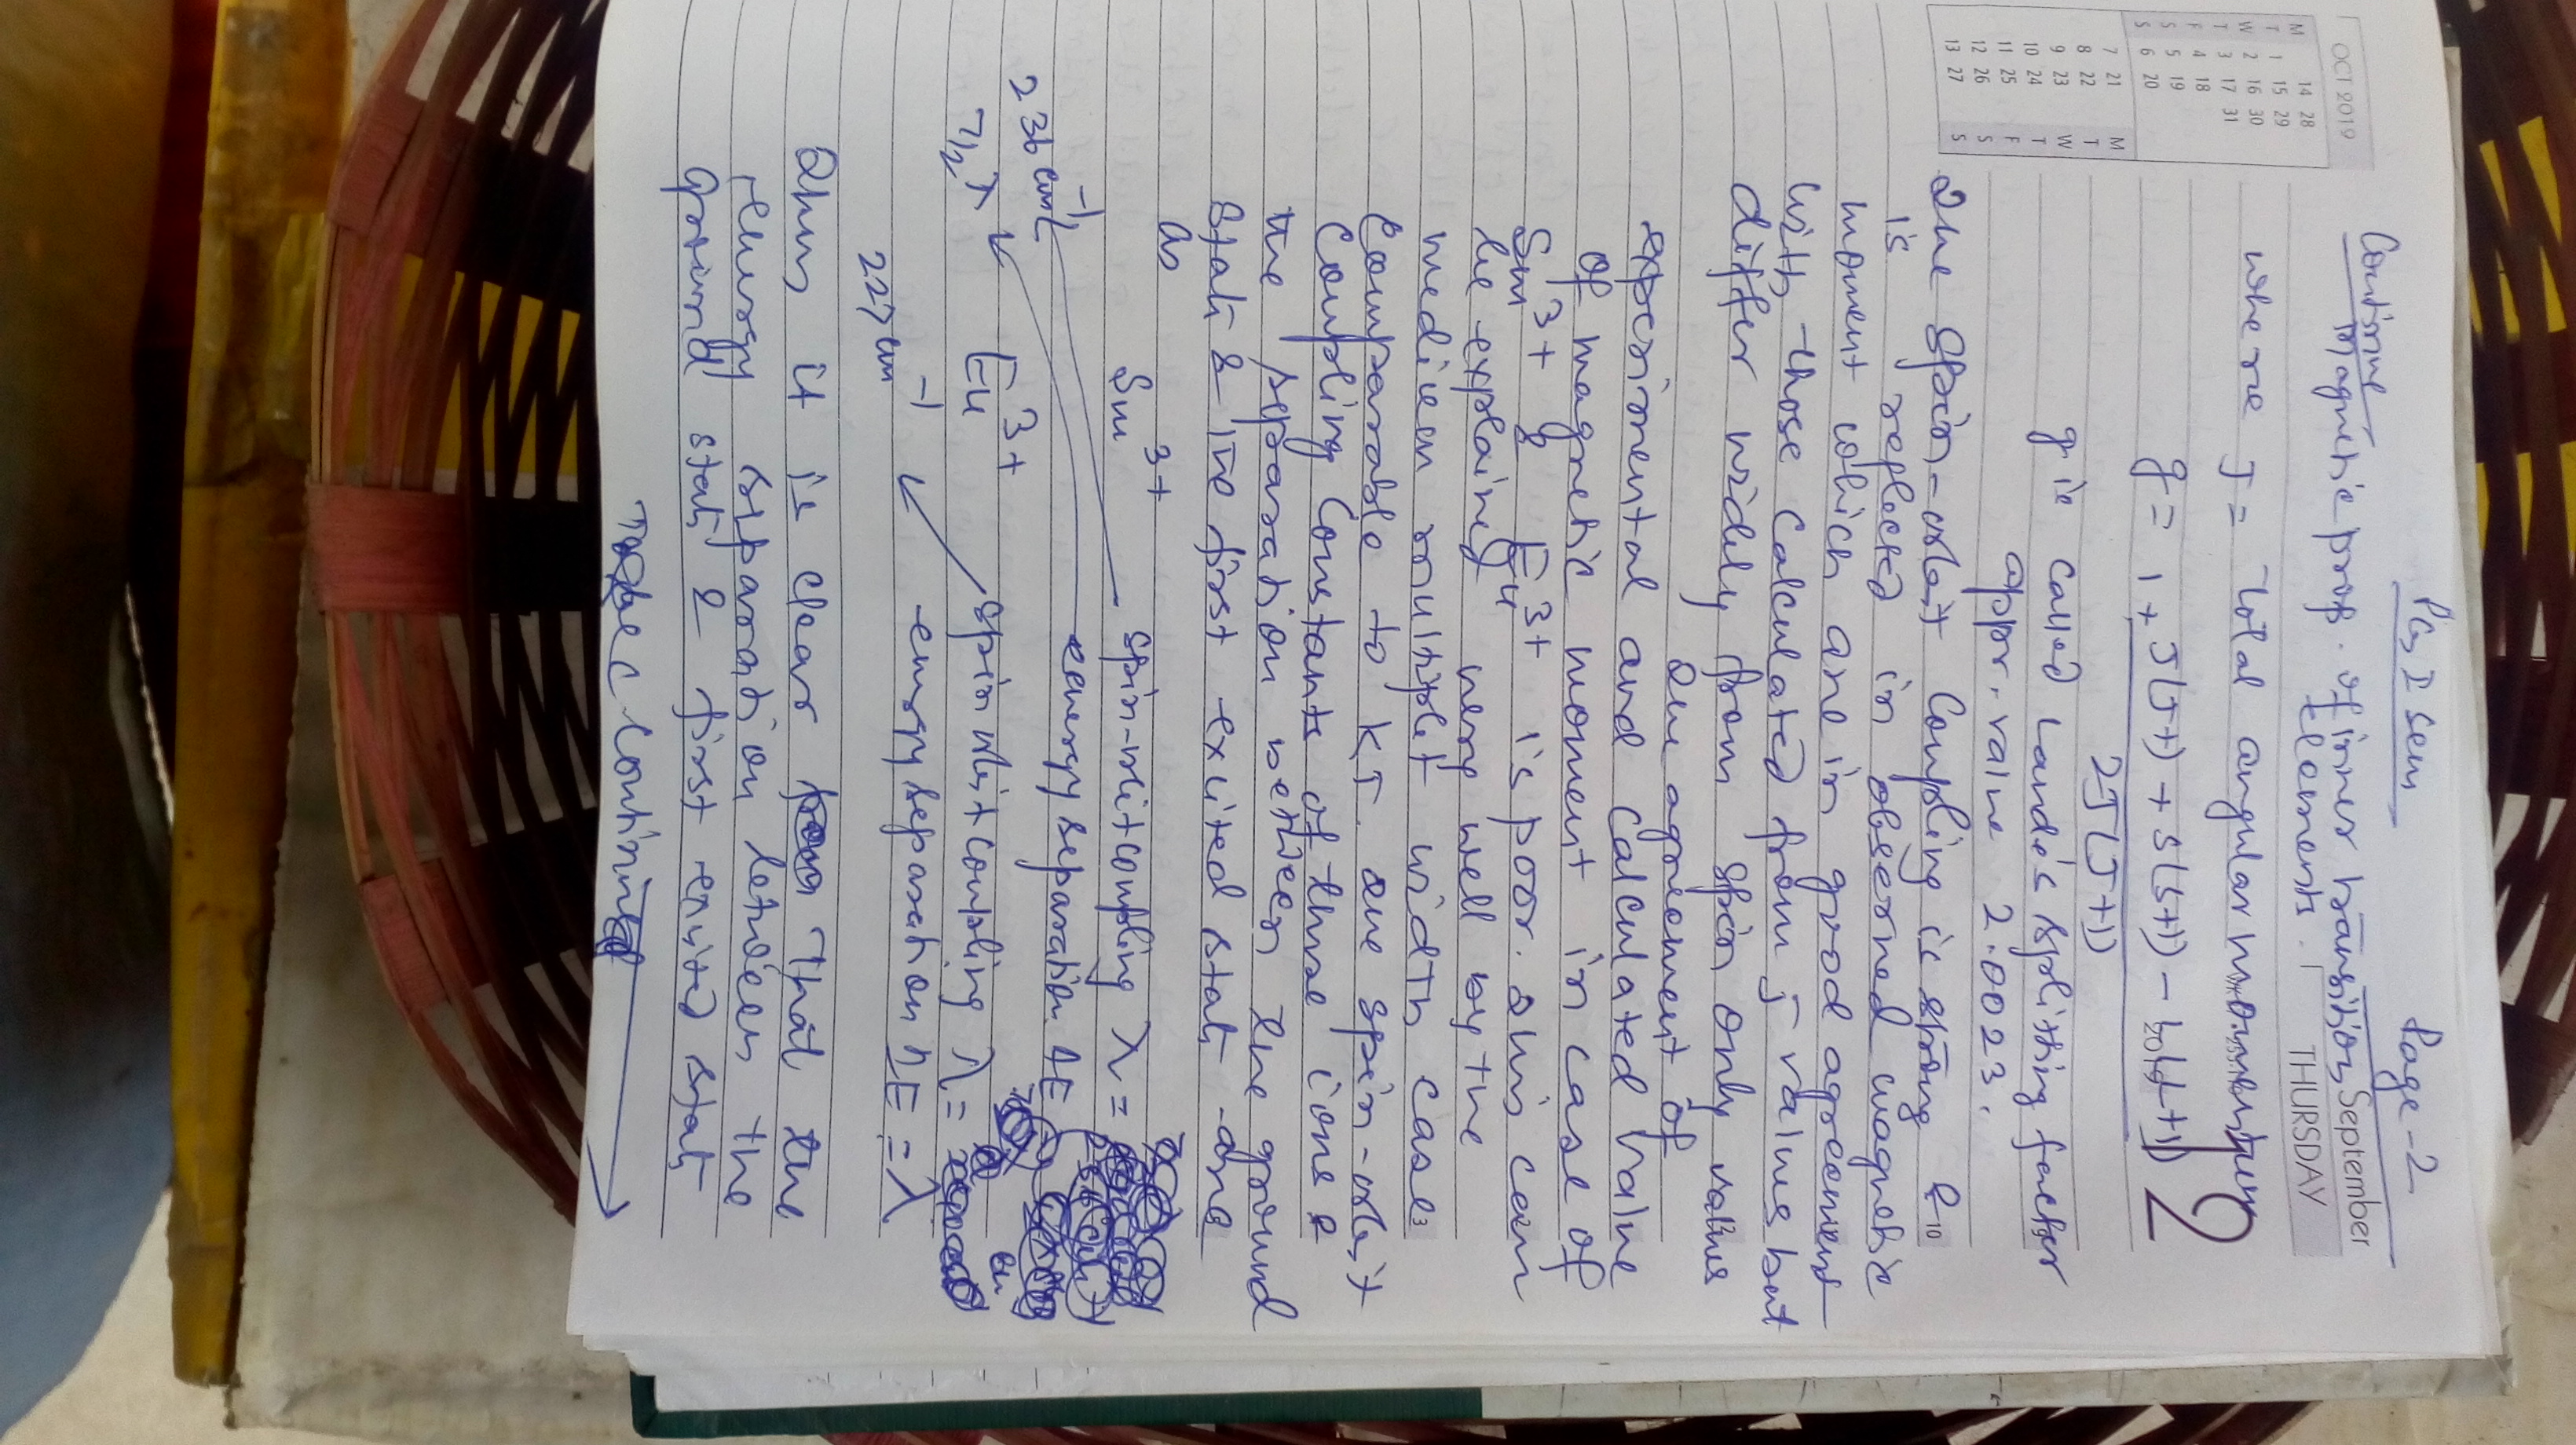 PG I Sem Page-2
Continue
Magnetic prop. of inner transition
elements.
September
THURSDAY
12
where J = Total angular momentum
g = 1 + J(J+1) + S(S+1) - L(L+1)
2J(J+1)
g is called Lande's splitting factor
appr. value 2.0023.
The spin-orbit coupling is strong &
is reflected in observed magnetic
moment which are in good agreement
with those calculated from J values but
differ widely from spin only values
The agreement of
experimental and calculated value
of magnetic moment in case of
Sm3+ & Eu3+ is poor. This can
be explained very well by the
medium multiplet width case
comparable to kT. The spin-orbit
coupling constants of these ions &
the separation between the ground
state & the first excited state are
as
Sm3+ spin-orbit coupling λ =
236 cm-1 energy separation ΔE
7/2 λ Eu3+ spin orbit coupling λ =
227 cm-1 energy separation ΔE = λ
Thus it is clear that the
energy separation between the
ground state & first excited state
continue
OCT 2019
M 14 28
T 1 15 29
W 2 16 30
T 3 17 31
F 4 18
S 5 19
S 6 20
7 21 M
8 22 T
9 23 W
10 24 T
11 25 F
12 26 S
13 27 S